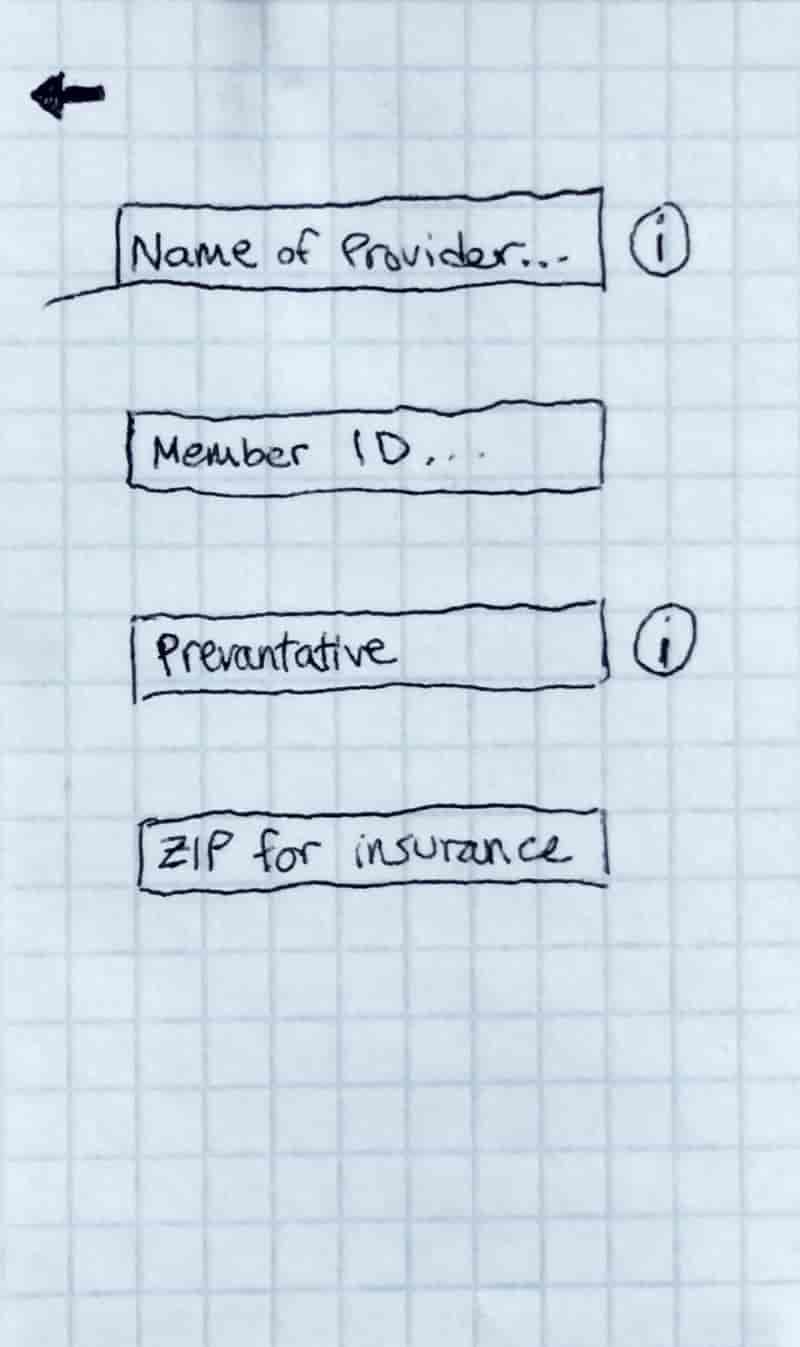 Name of Provider...
i
Member ID...
Prevantative
i
ZIP for insurance